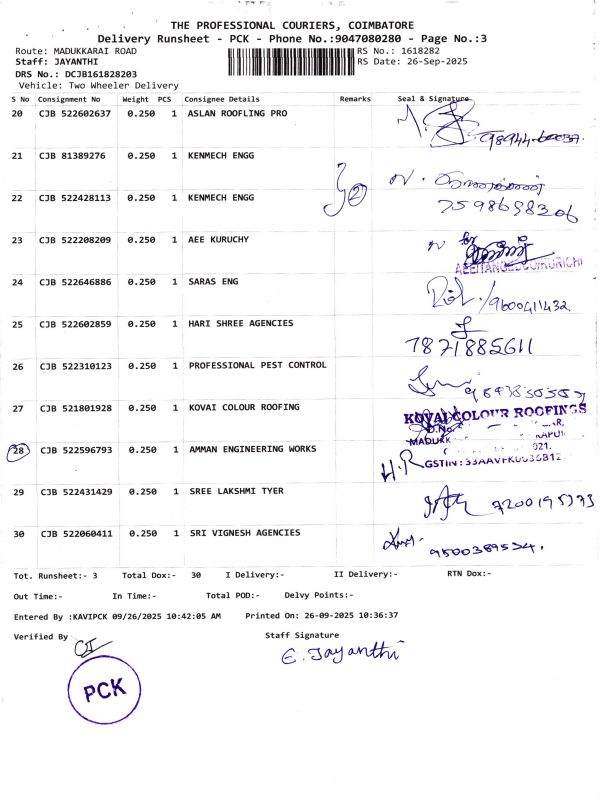 THE PROFESSIONAL COURIERS, COIMBATORE
Delivery Runsheet - PCK - Phone No.:9047080280 - Page No.:3
Route: MADUKKARAI ROAD RS No.: 1618282
Staff: JAYANTHI RS Date: 26-Sep-2025
DRS No.: DCJB161828203
Vehicle: Two Wheeler Delivery
S No Consignment No Weight PCS Consignee Details Remarks Seal & Signature
20 CJB 522602637 0.250 1 ASLAN ROOFLING PRO
21 CJB 81389276 0.250 1 KENMECH ENGG
22 CJB 522428113 0.250 1 KENMECH ENGG 2 7598698206
23 CJB 522208209 0.250 1 AEE KURUCHY
24 CJB 522646886 0.250 1 SARAS ENG 9600411432
25 CJB 522602859 0.250 1 HARI SHREE AGENCIES 7871885611
26 CJB 522310123 0.250 1 PROFESSIONAL PEST CONTROL
27 CJB 521801928 0.250 1 KOVAI COLOUR ROOFING KOVAI COLOUR ROOFINGS
28 CJB 522596793 0.250 1 AMMAN ENGINEERING WORKS H.R
29 CJB 522431429 0.250 1 SREE LAKSHMI TYER 7200195773
30 CJB 522060411 0.250 1 SRI VIGNESH AGENCIES 9500389524.
Tot. Runsheet:- 3 Total Dox:- 30 I Delivery:- II Delivery:- RTN Dox:-
Out Time:- In Time:- Total POD:- Delvy Points:-
Entered By :KAVIPCK 09/26/2025 10:42:05 AM Printed On: 26-09-2025 10:36:37
Verified By Staff Signature
E. Jayanthi
PCK